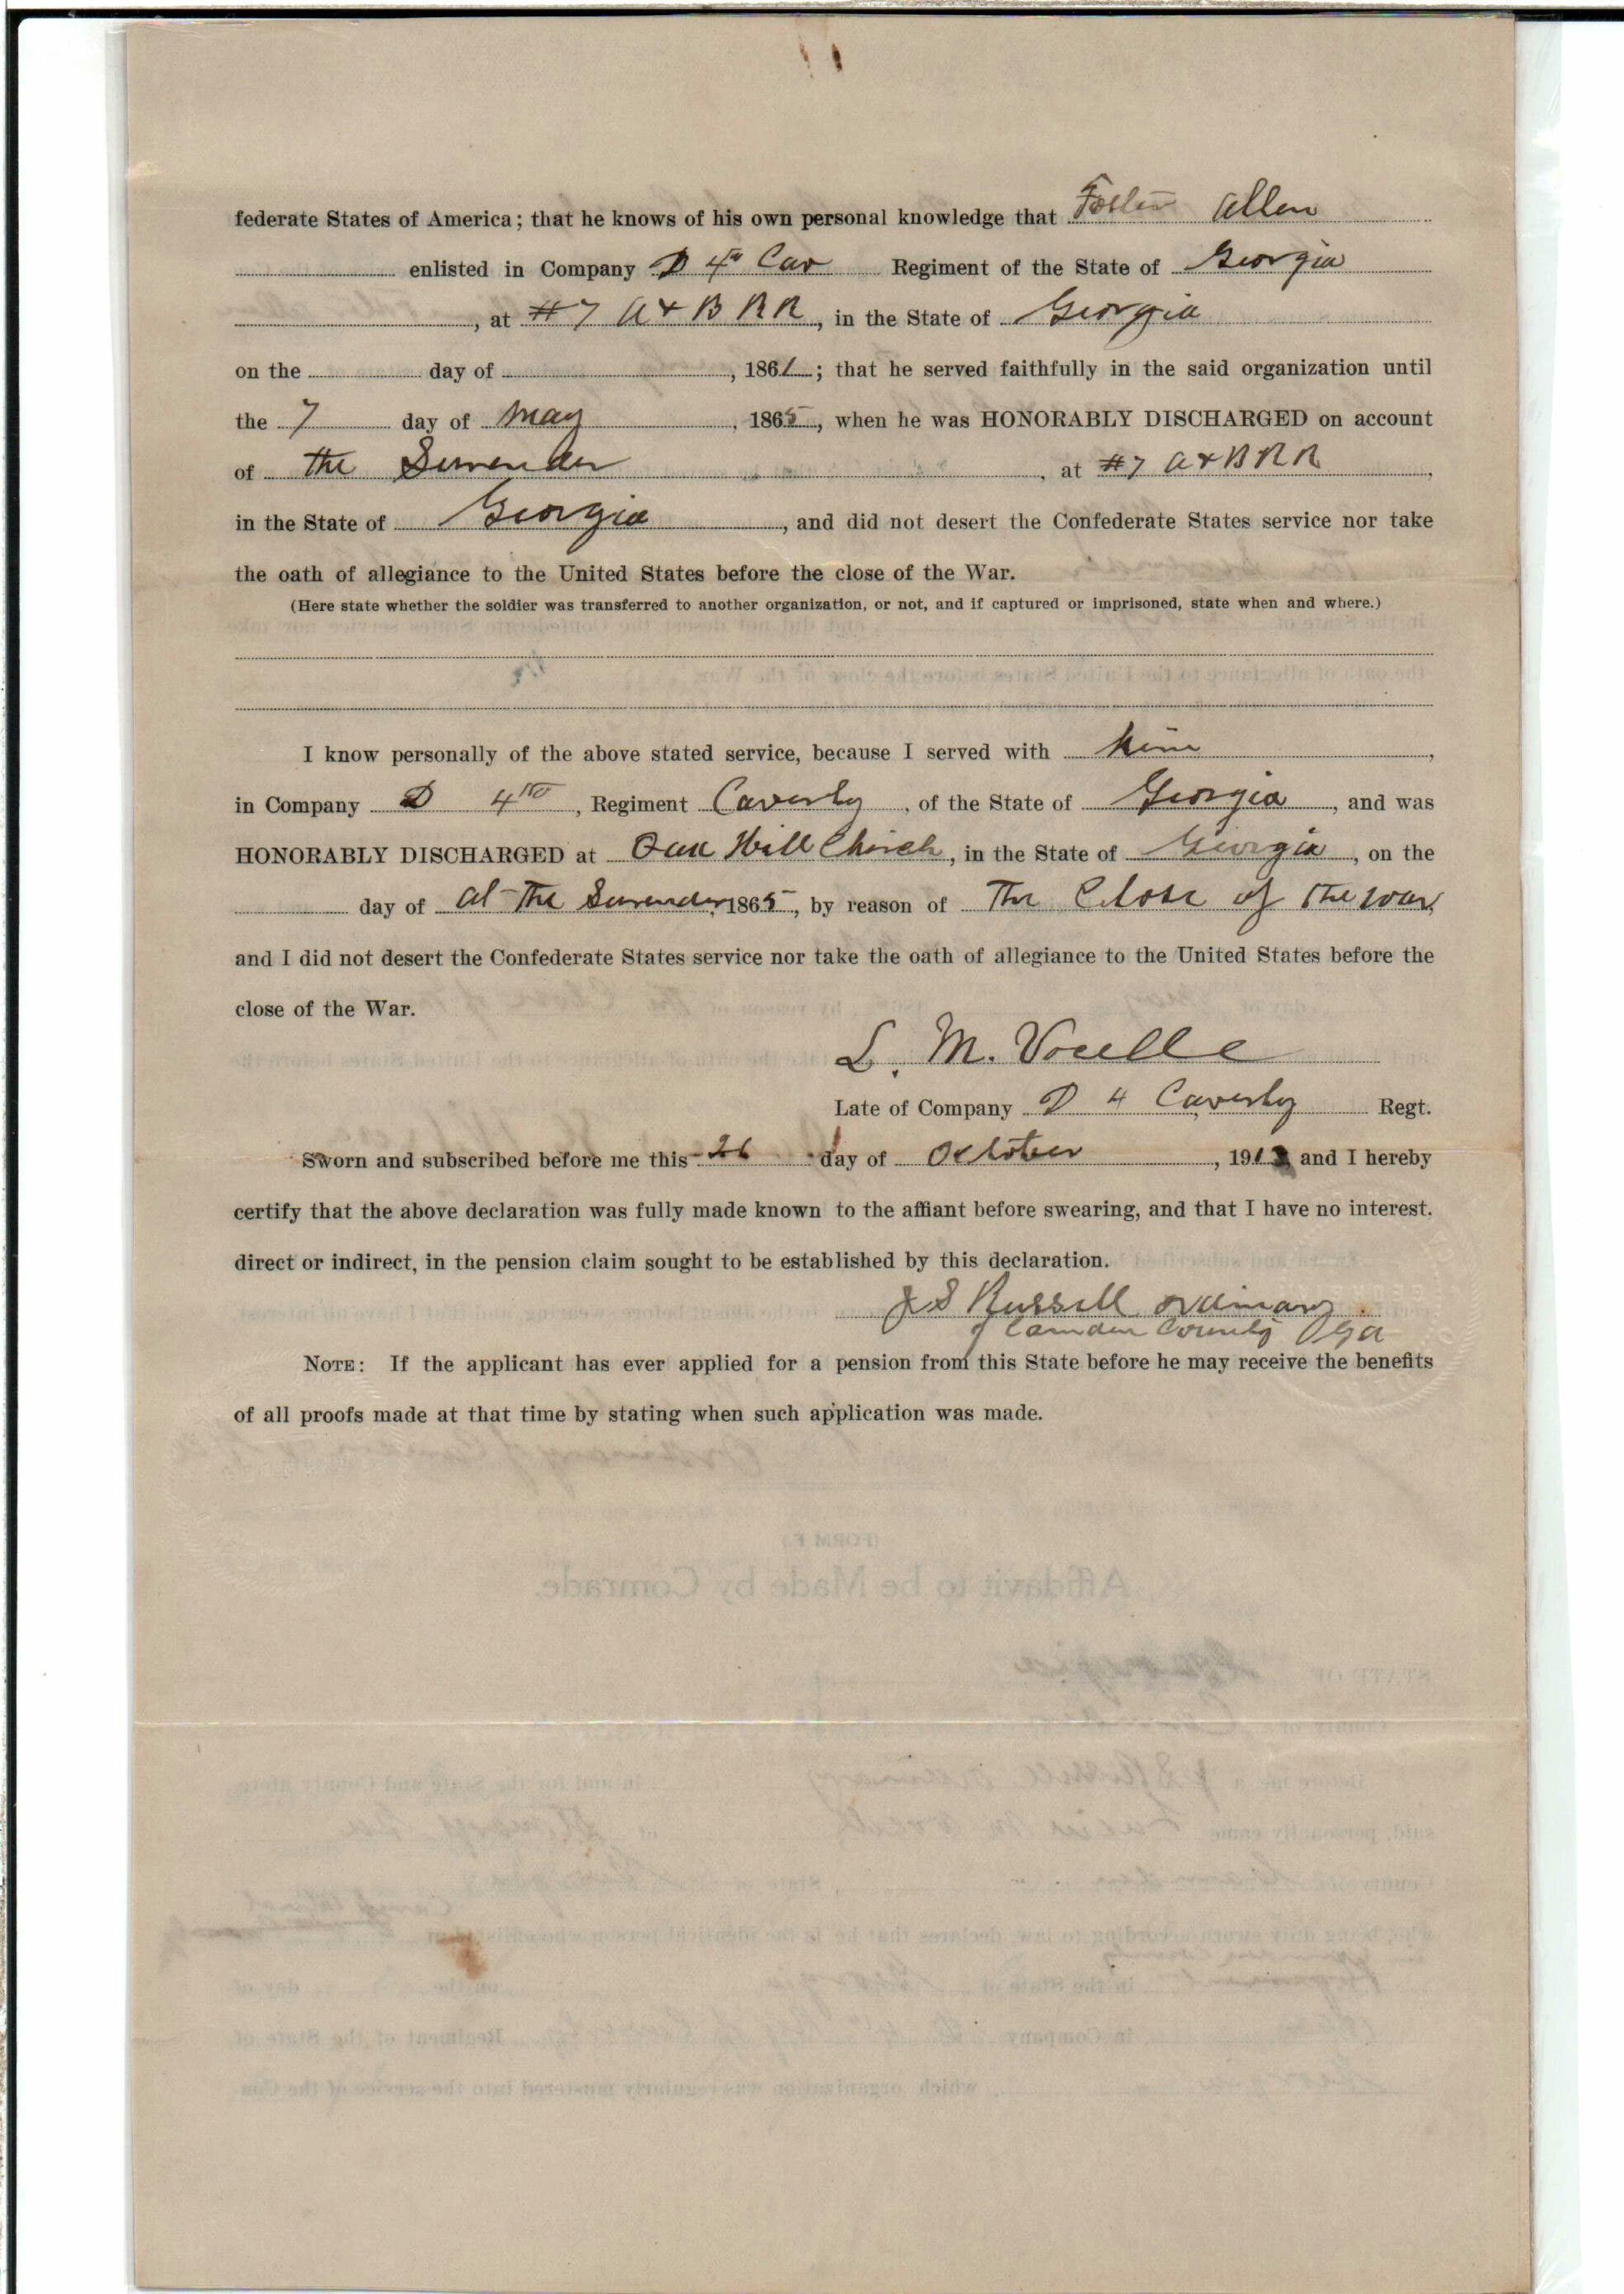 federate States of America; that he knows of his own personal knowledge that Foster Allen
enlisted in Company D 4th Cav Regiment of the State of Georgia
, at #7 A & B R R, in the State of Georgia
on the day of , 1861; that he served faithfully in the said organization until
the 7 day of May, 1865, when he was HONORABLY DISCHARGED on account
of the Surrender, at #7 A & B R R,
in the State of Georgia, and did not desert the Confederate States service nor take
the oath of allegiance to the United States before the close of the War.
(Here state whether the soldier was transferred to another organization, or not, and if captured or imprisoned, state when and where.)
I know personally of the above stated service, because I served with him,
in Company D 4th, Regiment Caverly, of the State of Georgia, and was
HONORABLY DISCHARGED at Hill Church, in the State of Georgia, on the
day of at The Surender, 1865, by reason of The Close of the war,
and I did not desert the Confederate States service nor take the oath of allegiance to the United States before the
close of the War.
L. M. Vocelle
Late of Company D 4 Caverly Regt.
Sworn and subscribed before me this 26 day of October, 191 and I hereby
certify that the above declaration was fully made known to the affiant before swearing, and that I have no interest.
direct or indirect, in the pension claim sought to be established by this declaration.
J S Russell ordinary
of Camden County Ga
NOTE: If the applicant has ever applied for a pension from this State before he may receive the benefits
of all proofs made at that time by stating when such application was made.